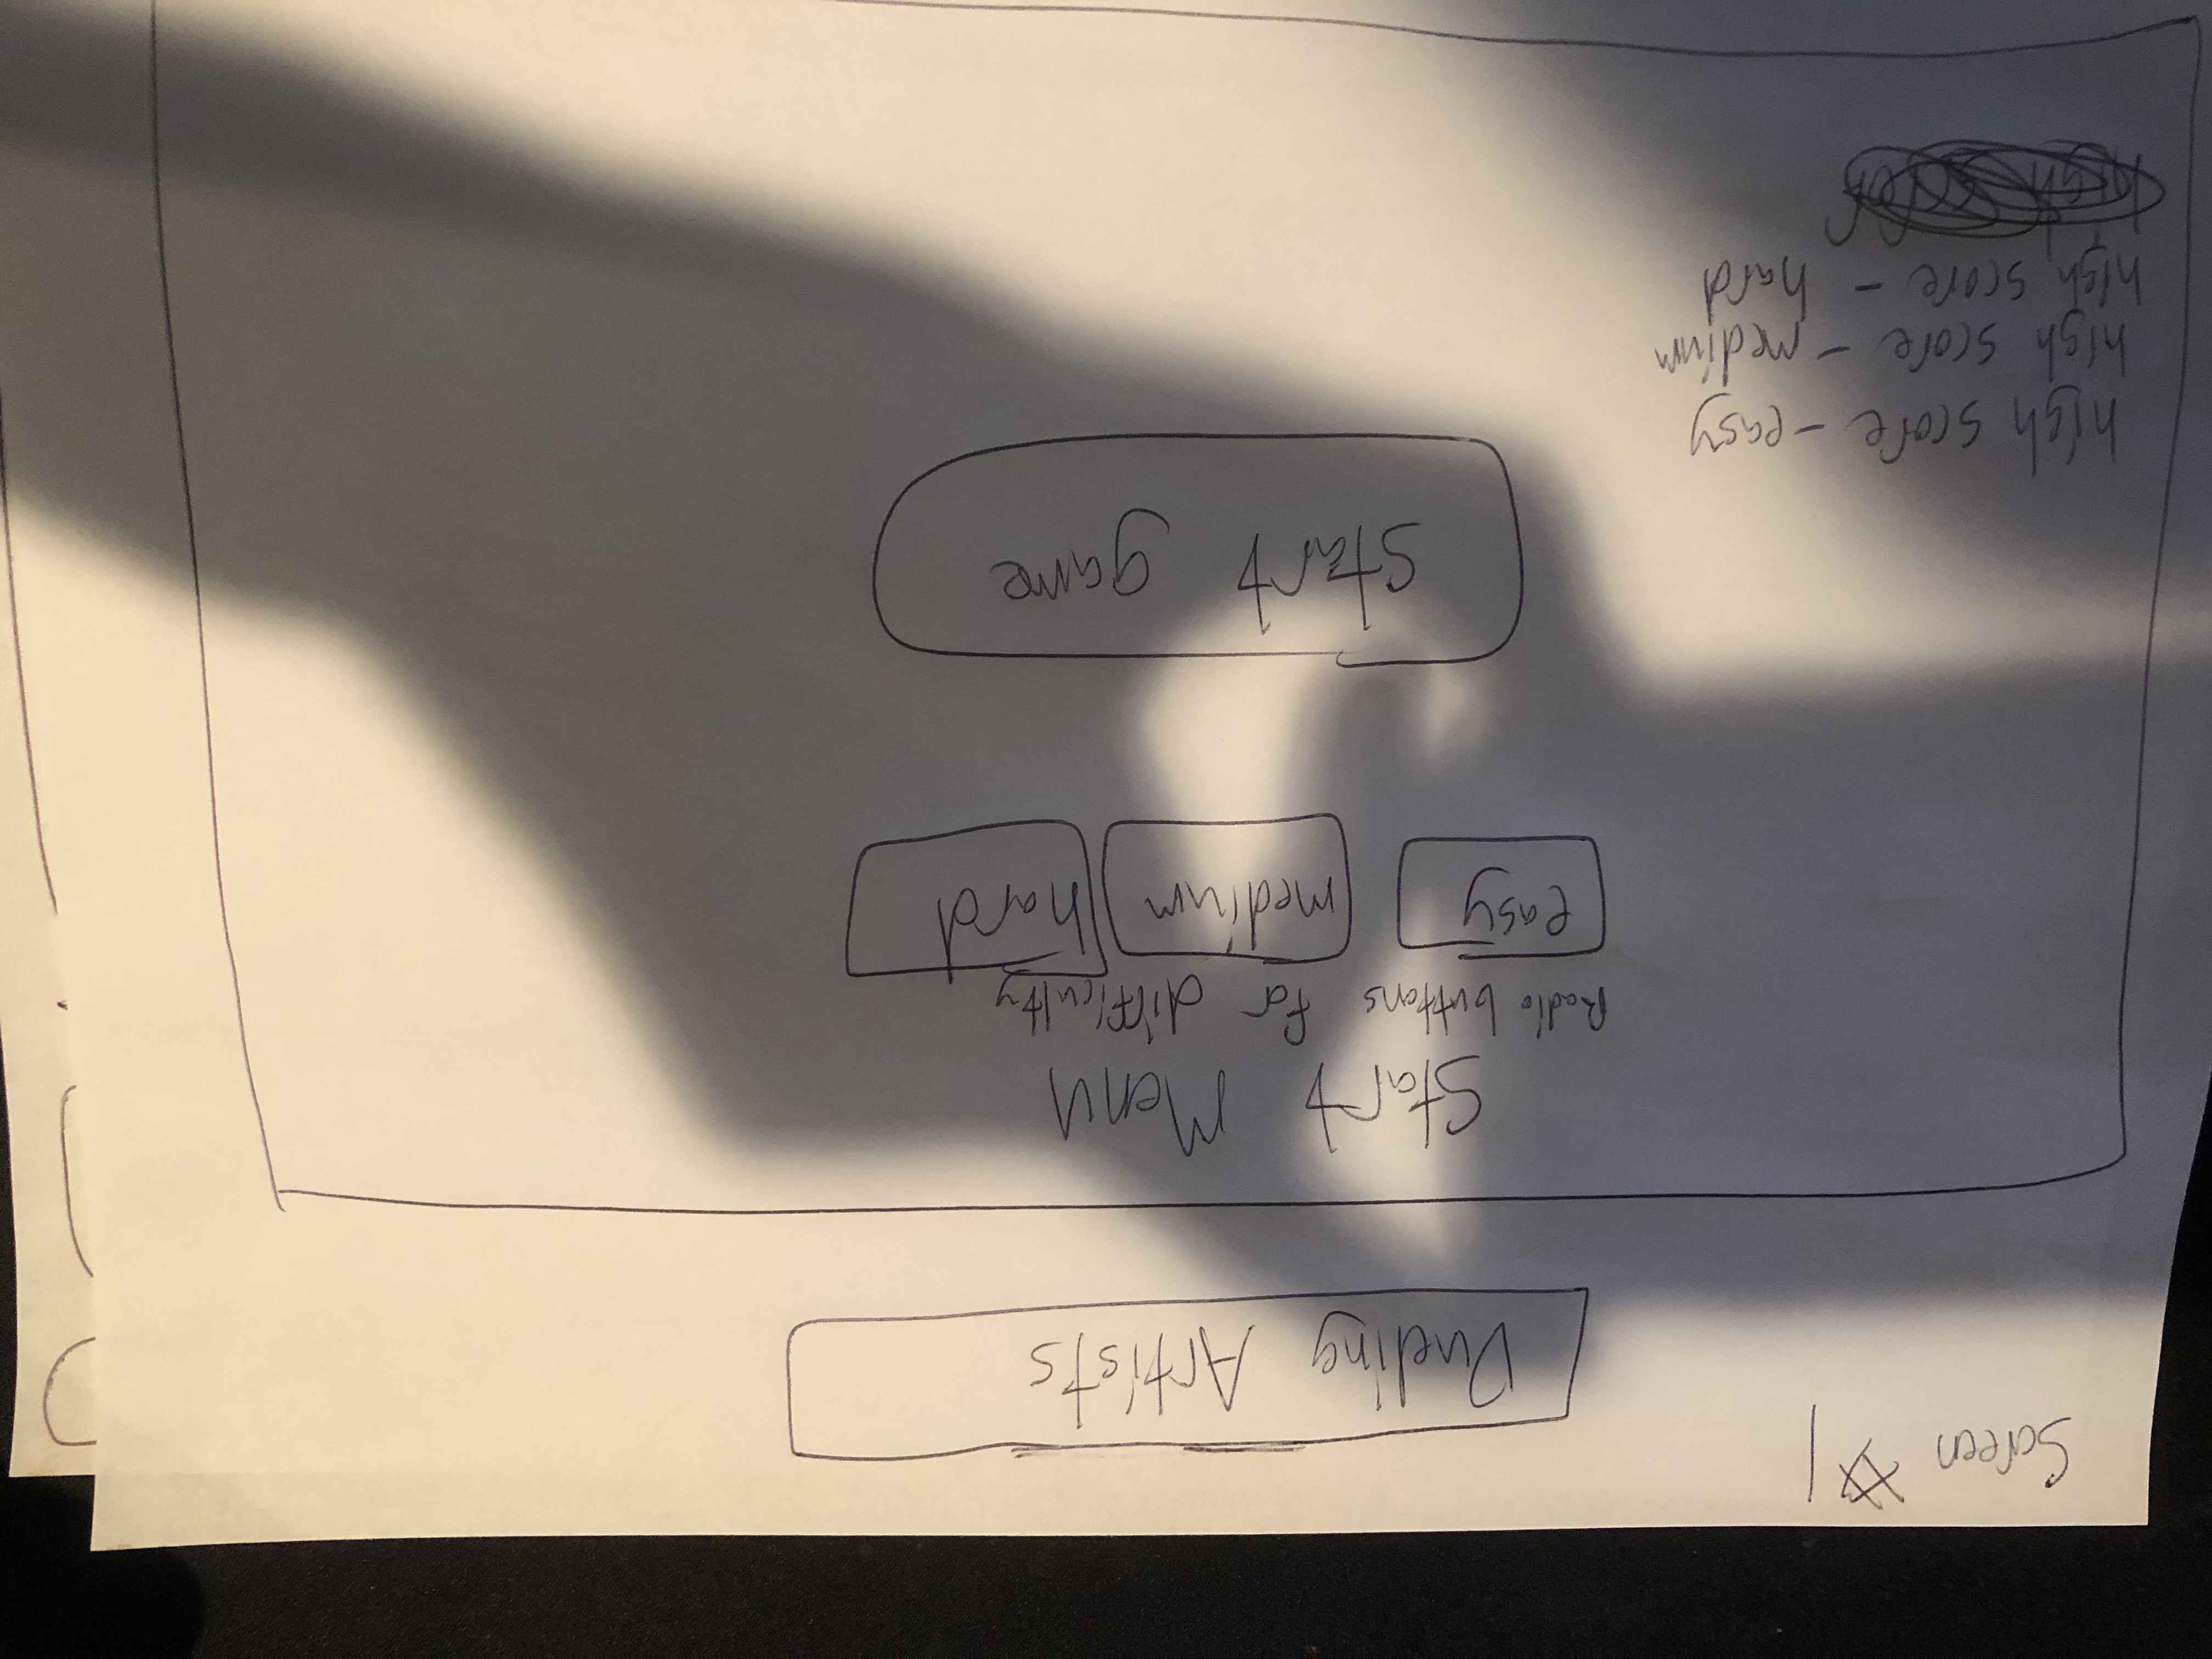 Screen #1
Dueling Artists
Start Menu
Radio buttons for difficulty
easy medium hard
Start game
high score - easy
high score - medium
high score - hard